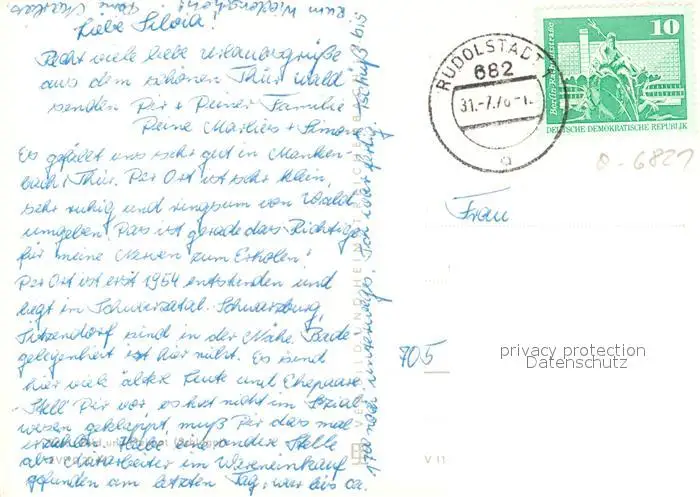 Liebe Silvia!
Recht viele liebe Urlaubsgrüße
aus dem schönen Thür. wald
senden Dir + Deiner Familie
Deine Marlies + Simone
Es gefällt uns sehr gut in
bach / Thür. Der Ort ist sehr klein,
sehr ruhig und ringsum von Wald
umgeben. Das ist gerade das Richtige
für meine Nerven zum Erholen!
Der Ort ist erst 1954 entstanden und
liegt im Schwarzatal. Schwarzburg,
Sitzendorf sind in der Nähe. Bade
gelegenheit ist hier nicht. Es sind
hier viele ältere Leute und Ehepaare.
Stell Dir vor, es hat nicht im Sozial-
wesen geklappt, muß Dir das mal
erzählen. Habe eine andere Stelle
als Mitarbeiter im Wareneinkauf
gefunden am letzten Tag, war bis ca.
1700 noch unterwegs. Ich war fertig. Tschüß bis
zum Wiedersehen!
RUDOLSTADT 1
682
31.-7.76-1
a
10
Berlin-Rathausstraße
DEUTSCHE DEMOKRATISCHE REPUBLIK
6821
Frau
705
privacy protection
Datenschutz
V 11